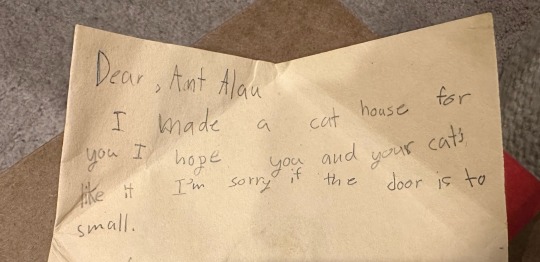 Dear, Ant Alau
I made a cat house for
you I hope you and your cat's
like it I'm sorry if the door is to
small.